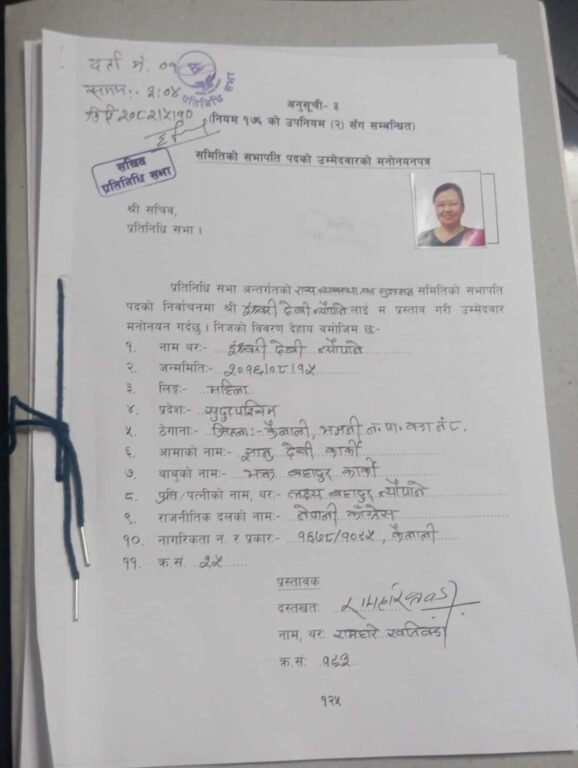 दर्ता नं. ०१
समयः- २:०४
मिति २०८२।५।१०
प्रतिनिधि सभा
अनुसूची- ३
(नियम १७६ को उपनियम (२) सँग सम्बन्धित)
सचिव
प्रतिनिधि सभा
समितिको सभापति पदको उम्मेदवारको मनोनयनपत्र
श्री सचिव,
प्रतिनिधि सभा ।
प्रतिनिधि सभा अन्तर्गतको राज्य व्यवस्था तथा सुशासन समितिको सभापति
पदको निर्वाचनमा श्री ईश्वरी देवी न्यौपाने लाई म प्रस्ताव गरी उम्मेदवार
मनोनयन गर्दछु । निजको विवरण देहाय बमोजिम छः-
१. नाम थरः- ईश्वरी देवी न्यौपाने
२. जन्ममितिः- २०१६/०८/१५
३. लिङ्गः- महिला
४. प्रदेशः- सुदुरपश्चिम
५. ठेगानाः- जिल्लाः- कैलाली, भजनी न.पा. वडा नं ८
६. आमाको नामः- देवी कार्की
७. बाबुको नामः- भक्त बहादुर कार्की
८. पति/पत्नीको नाम, थरः- लक्ष्य बहादुर न्यौपाने
९. राजनीतिक दलको नामः- नेपाली काँग्रेस
१०. नागरिकता नं. र प्रकारः- कैलाली
११. क्र.सं. २५
प्रस्तावक
दस्तखतः
नाम, थरः रामहरि खतिवडा
क्र.संः १९३
१२५